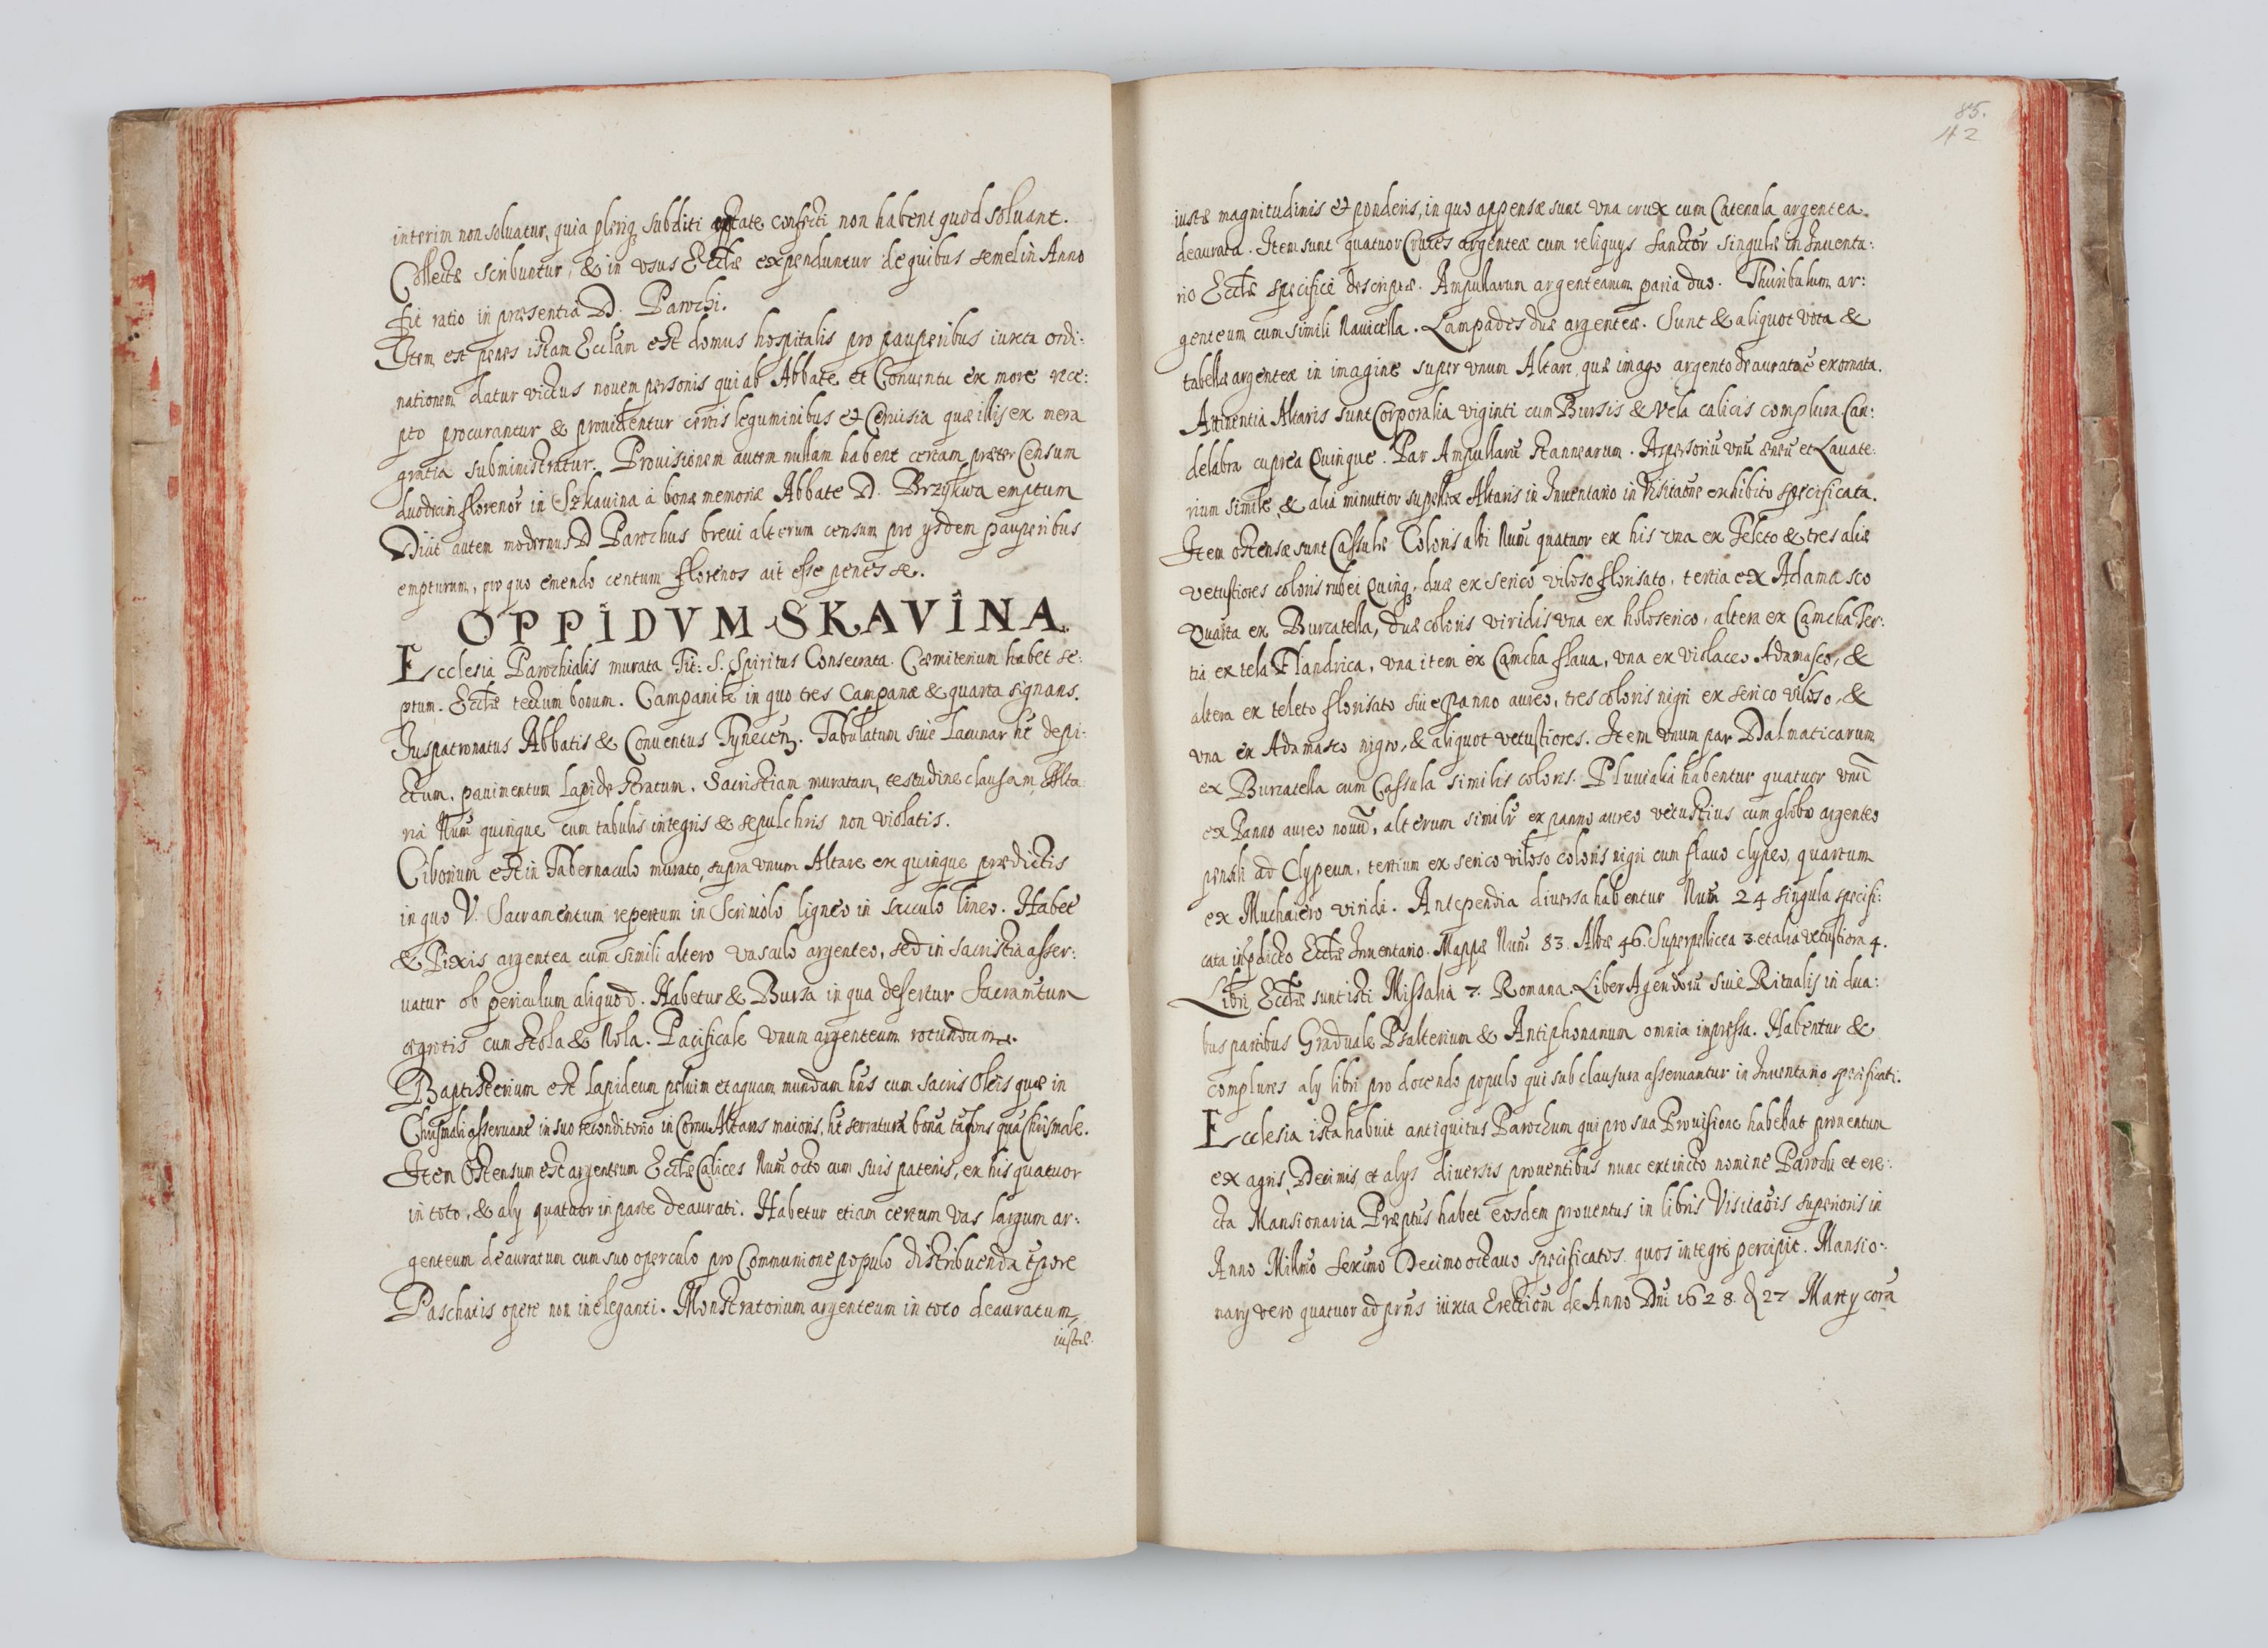 interim non soluatur, quia pleriq; subditi ęgestate confecti non habent quod soluant.
Collectæ scribuntur, & in vsus Eccłæ expenduntur de quibus semel in Anno
fit ratio in præsentia D. Parochi.
Item est penes istam Ecclam est domus hospitalis pro pauperibus iuxta ordi:
nationem datur victus nouem personis qui ab Abbate et Conuentu ex more rece:
pto procurantur & prouidentur certis leguminibus et Ceruisia quæ illis ex mera
gratia subministratur. Prouisionem autem nullam habent certam præter Censum
duodecim florenor in Szkauina à bonæ memoriæ Abbate D. Brzÿkwa emptum
Dixit autem modernus D Parochus breui alterum censum pro ysdem pauperibus
empturum, pro quo emendo centum florenos ait esse penes se.
OPPIDVM SKAVINA.
Ecclesia Parochialis murata Tit: S. Spiritus Consecrata. Cæmiterium habet se:
ptum. Eccłæ tectum bonum. Campanile in quo tres Campanæ & quarta signans.
Juspatronatus Abbatis & Conuentus Tynecen. Tabulatum siue Lacunar ht depi:
ctum, pauimentum lapide stratum. Sacristiam muratam, testudine clausam, Alta
ria Num quinque cum tabulis integris & sepulchris non violatis.
Ciborium est in Tabernaculo murato, supra vnum Altare ex quinque prædictis
in quo V. Sacramentum repertum in Scriniolo ligneo in sacculo lineo. Habet
& Pixis argentea cum simili altero vasculo argenteo, sed in sacristia asser:
uatur ob periculum aliquod. Habetur & Bursa in qua defertur Sacramtum
ægrotis cum stola & Nola. Pacificale vnum argenteum rotundum.
Baptisterium est lapideum peluim et aquam mundam hns cum sacris Oleis quæ in
Chrismali asseruant in suo reconditorio in Cornu Altaris maioris, ht serratura bona tã fons quã Chrismale.
Item Ostensum est argenteum Eccłæ Calices Num octo cum suis patenis, ex his quatuor
in toto, & aly quatuor in parte deaurati. Habetur etiam certum vas largum ar:
genteum deauratum cum suo operculo pro Communione populo distribuenda tpore
Paschatis opere non ineleganti. Monstratorium argenteum in toto deauratum
iustæ
85.
42
iustæ magnitudinis et ponderis, in quo appensæ sunt vna crux cum Catenula argentea
deaurata. Item sunt quatuor Cruces argenteæ cum reliquys Sanctor singulæ in Inuenta:
rio Eccłæ specificè descriptæ. Ampullarum argentearum paria duo. Thuribulum ar:
genteum cum simili Nauicella. Lampades duæ argenteæ. Sunt & aliquot vota &
tabellæ argenteæ in imagine super vnum Altare, quæ imago argento deaurato ē exornata.
Attinentia Altaris sunt Corporalia viginti cum Bursis & Vela calicis complura. Can:
delabra cuprea Quinque. Par Ampullarū stannearum. Aspersoriū vnū æneū et Lauate:
rium simile, & alia minutior supellex Altaris in Inuentario in Visitaone exhibito specificata.
Item ostensæ sunt Cassulæ Coloris albi Num quatuor ex his vna ex Teleto & tres aliæ
vetustiores coloris rubei Quinq; duæ ex serico viloso florisato, tertia ex Adamasco
Quarta ex Burcatella, duæ coloris viridis vna ex holoserico, altera ex Camcha Ter:
tia ex tela Flandrica, vna item ex Camcha flaua, vna ex violaceo Adamasco, &
altera ex teleto florisato siue Panno aureo, tres coloris nigri ex serico viloso, &
vna ex Adamasco nigro, & aliquot vetustiores. Item vnum par Dalmaticarum
ex Burcatella cum Cassula similis coloris. Pluuialia habentur quatuor vnū
ex Panno aureo nouū, alterum simile ex panno aureo vetustius cum globo argenteo
pensili ad Clypeum, tertium ex serico viloso coloris nigri cum flauo clypeo, quartum
ex Muchaiero viridi. Antependia diuersa habentur Num 24 singula specifi:
cata in pdicto Eccłæ Inuentario. Mappæ Num 83. Albæ 46. Superpellicea 3. et alia vetustiora 4.
Libri Eccłæ sunt isti Missalia 7. Romana. Liber Agendorū siue Ritualis in dua:
bus partibus Graduale Psalterium & Antiphonarium omnia impressa. Habentur &
complures aly libri pro docendo populo qui sub clausura asseruantur in Inuentario specificati.
Ecclesia ista habuit antiquitus Parochum qui pro sua Prouisione habebat prouentum
ex agris, Decimis, et alys diuersis prouentibus nunc extincto nomine Parochi et ere:
cta Mansionaria Præptus habet eosdem prouentus in libris Visitaõis superioris in
Anno Millmo Sexcmo Decimo octauo specificatos quos integrè percipit. Mansio:
narÿ vero quatuor ad prns iuxta Erectiom de Anno Dni 1628. d 27 Marty corã